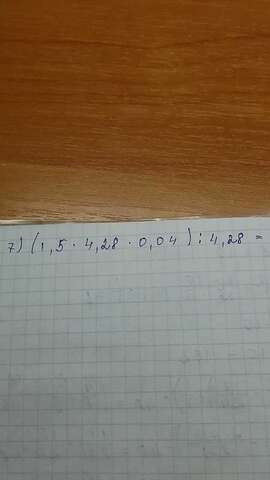 7) (1,5 · 4,28 · 0,04) : 4,28 =